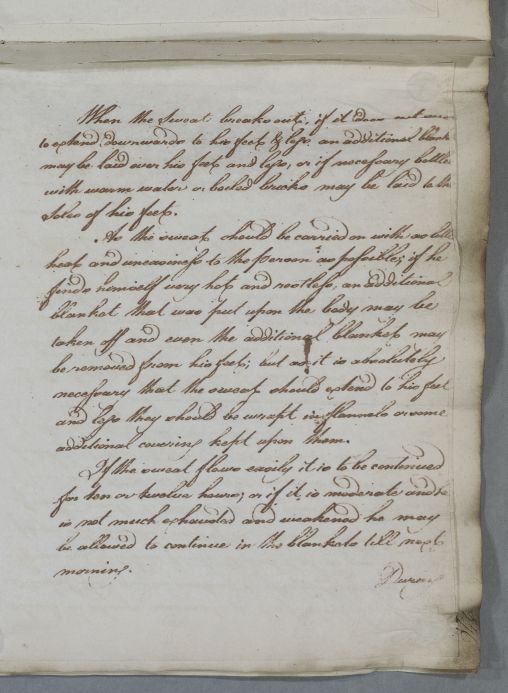 When the sweat breaks out, if it does not
to extend downwards to his feet & legs an additional blank
may be laid over his feet and legs, or if necessary bottles
with warm water or boiled bricks may be laid to the
soles of his feet.
As the sweat should be carried on with as little
heat and uneasiness to the person as possible; if he
finds himself very hot and restless, an additional
blanket that was put upon the body may be
taken off and even the additional blanket may
be removed from his feet; but as it is absolutely
necessary that the sweat should extend to his feet
and legs they should be wrapt in flannels or some
additional covering kept upon them.
If the sweat flows easily it is to be continued
for ten or twelve hours; or if it is moderate and he
is not much exhausted and weakened he may
be allowed to continue in the blankets till next
morning.
During